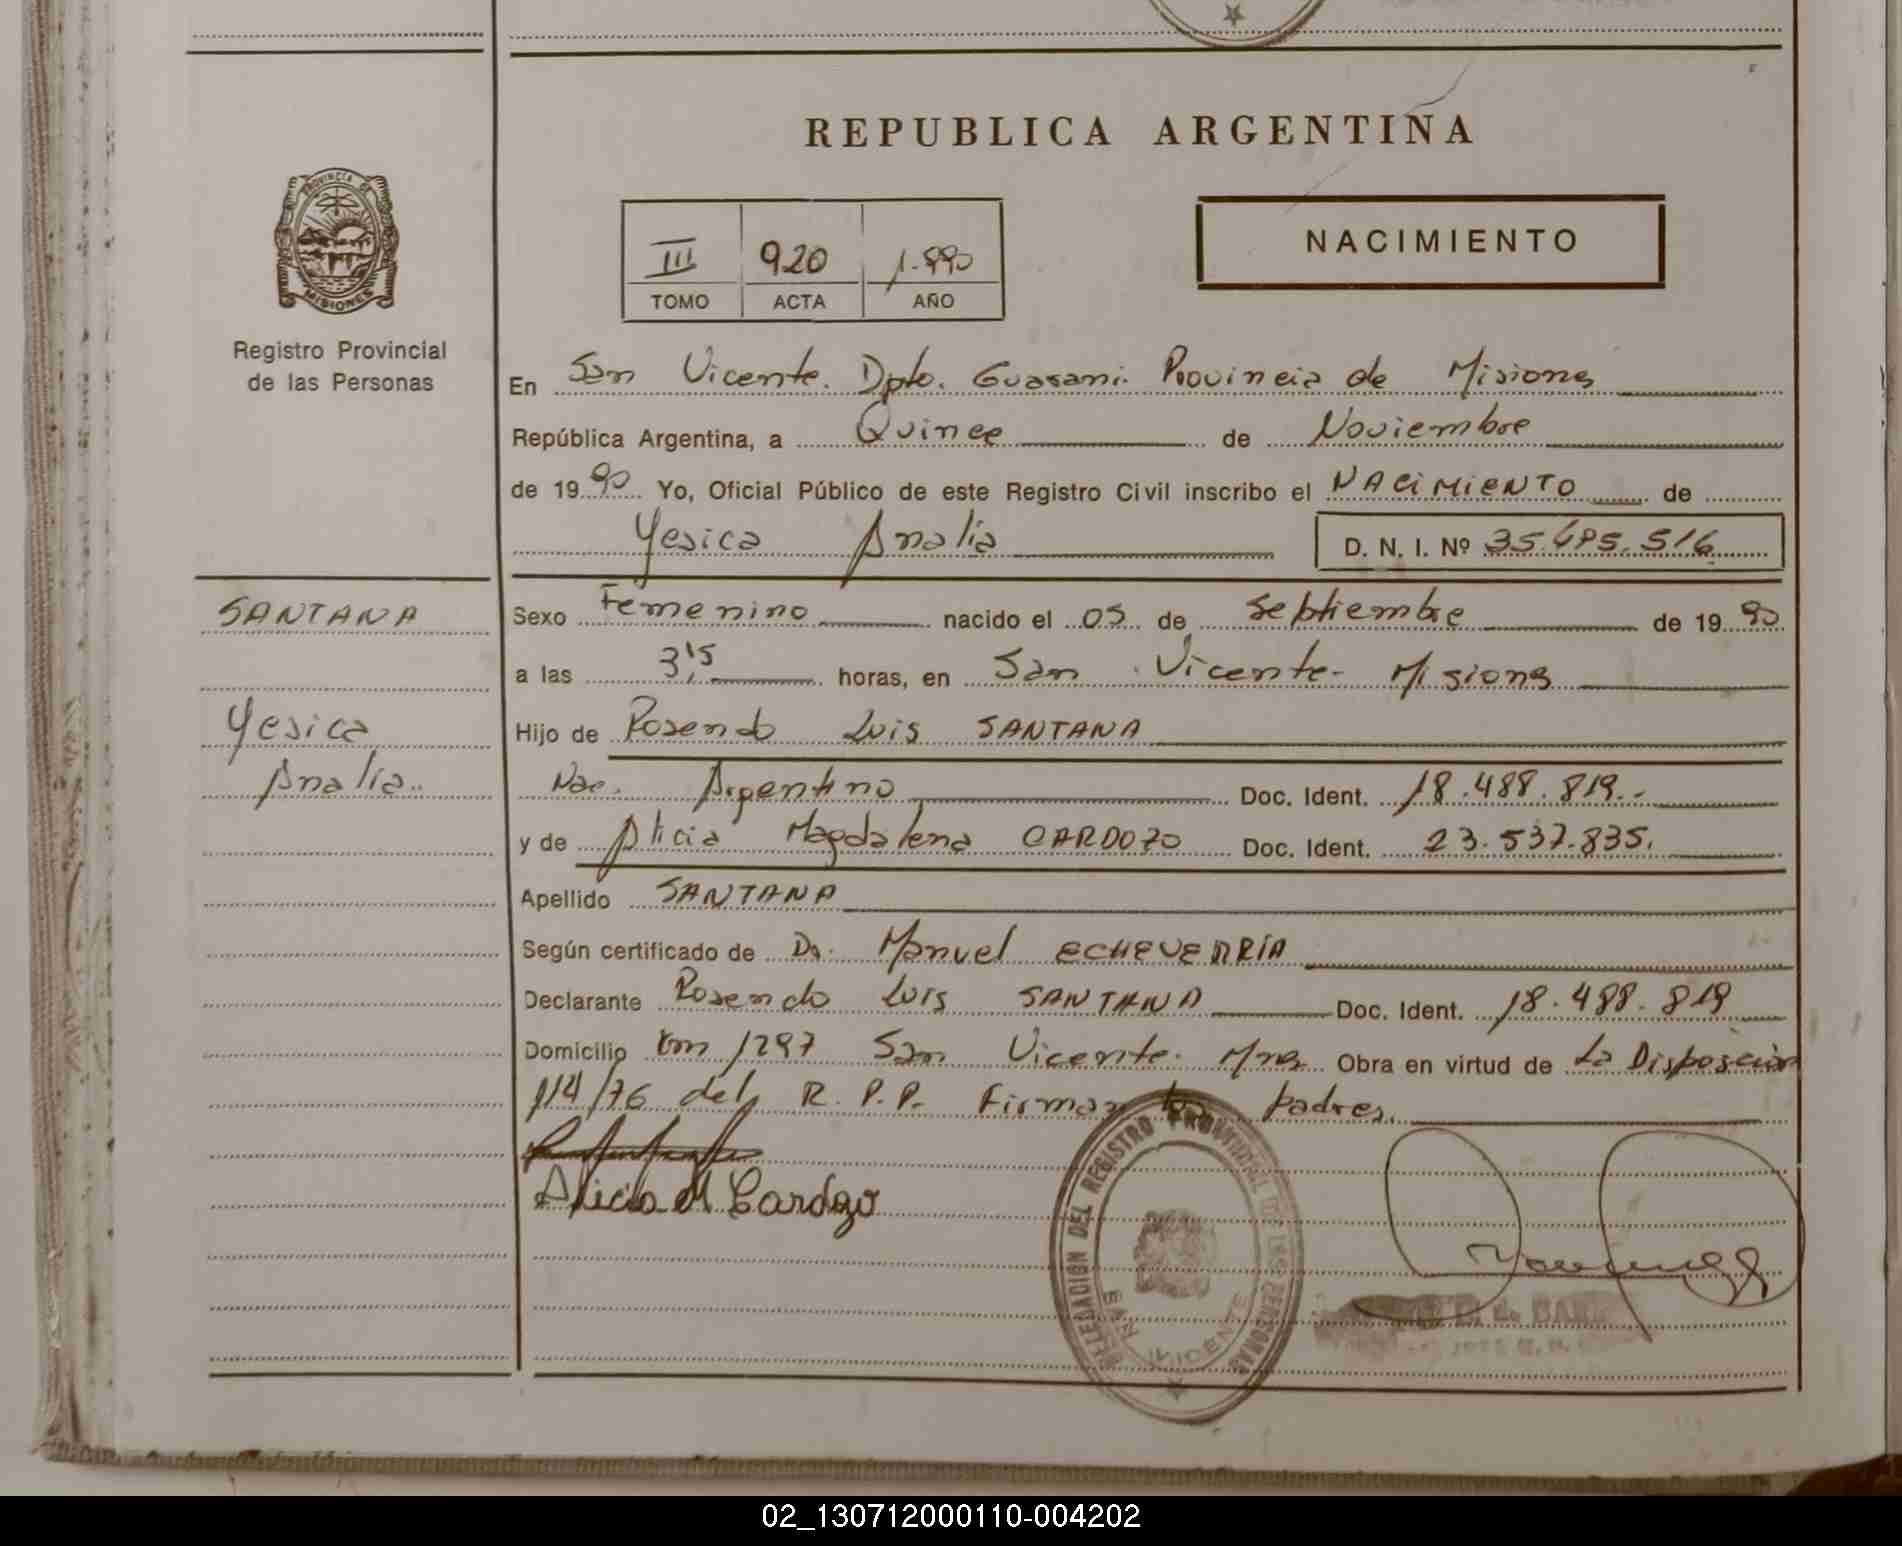 REPUBLICA ARGENTINA
PROVINCIA DE
MISIONES
Registro Provincial
de las Personas
III 920 1.990
TOMO ACTA AÑO
NACIMIENTO
En San Vicente. Dpto. Guarani. Provincia de Misiones
República Argentina, a Quince de Noviembre
de 1990 Yo, Oficial Público de este Registro Civil inscribo el NACIMIENTO de
Yesica Analia
D. N. I. Nº 35.695.516
SANTANA
Yesica
Analia..
Sexo Femenino nacido el 05 de Septiembre de 1990
a las 3,15 horas, en San Vicente- Misiones
Hijo de Rosendo Luis SANTANA
Nac. Argentino Doc. Ident. 18.488.819.-
y de Alicia Magdalena CARDOZO Doc. Ident. 23.537.835.
Apellido SANTANA
Según certificado de Dr. Manuel ECHEVERRÍA
Declarante Rosendo Luis SANTANA Doc. Ident. 18.488.819
Domicilio Km 1297 San Vicente. Mnes Obra en virtud de La Disposición
114/76 del R. P. P. Firman los padres.
Alicia M Cardozo
DELEGACION DEL REGISTRO PROVINCIAL DE LAS PERSONAS
SAN VICENTE
02_130712000110-004202